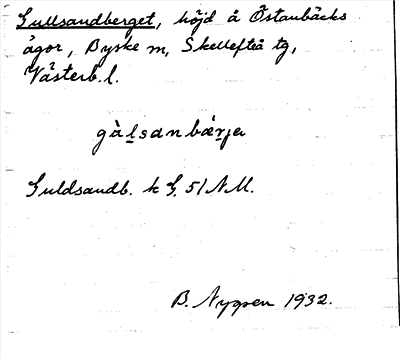 Gullsandberget, höjd å Östanbäcks
ägor, Byske sn, Skellefteå tg,
Västerb. l.
gàl̲sanbær̲ja
Guldsandb. k G. 51 N.M.
B. Nygren 1932.